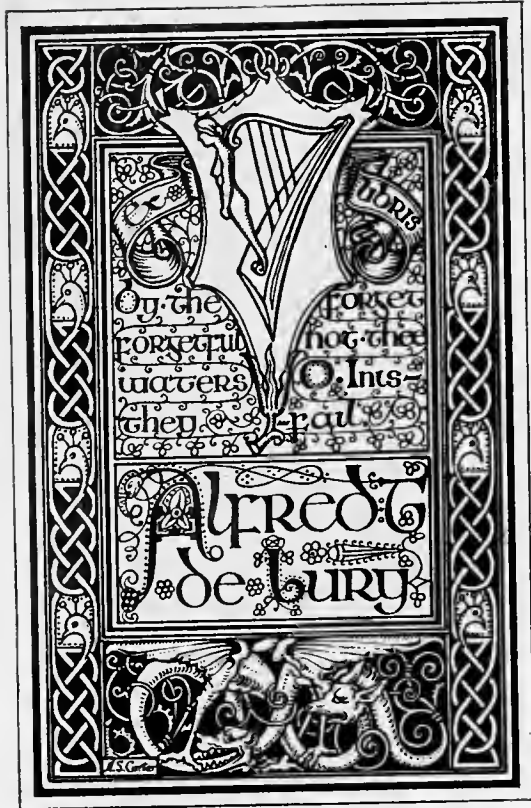 Ex Libris
By·the
forgetful
waters
they
forget
not·thee
O·Inis~
~fail
Alfred·T
de Lury
A.S. Carter